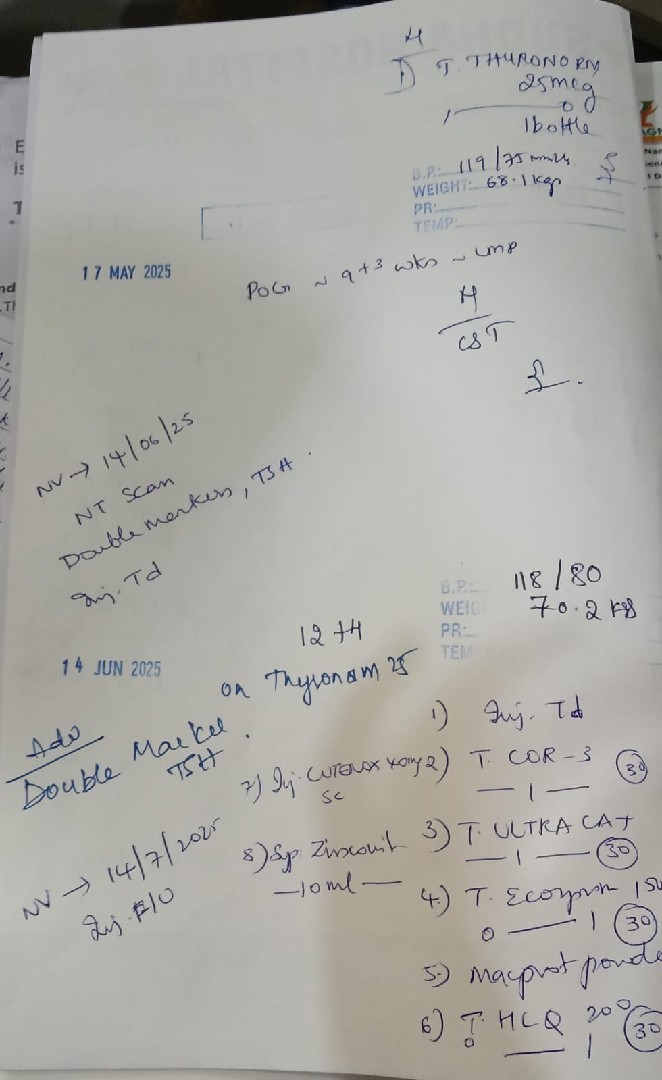 T. THYRONORM
25mcg
1 ——— 0
1 bottle
B.P.: 119/75 mmHg
WEIGHT: 68.1 kgs
PR:
TEMP:
17 MAY 2025
POG ~ 9+3 wks ~ LMP
CST
NV → 14/06/25
NT Scan
Double markers, TSH.
Inj. Td
B.P.: 118/80
WEIG 70.2 KG
PR:
TEM
12+4
14 JUN 2025
on Thyronam 25
Adv
Double Marker
TSH.
NV → 14/7/2025
1) Inj. Td
2) T. COR-3
— 1 — 30
3) T. ULTRA CAT
— 1 — 30
4) T. Ecosprin 150
0 — 1 30
5) Macprot powde
6) T. HCQ 200
0 — 1 30
7) Inj. CUTENOX
SC
8) Sp. Zincovit
— 10ml —